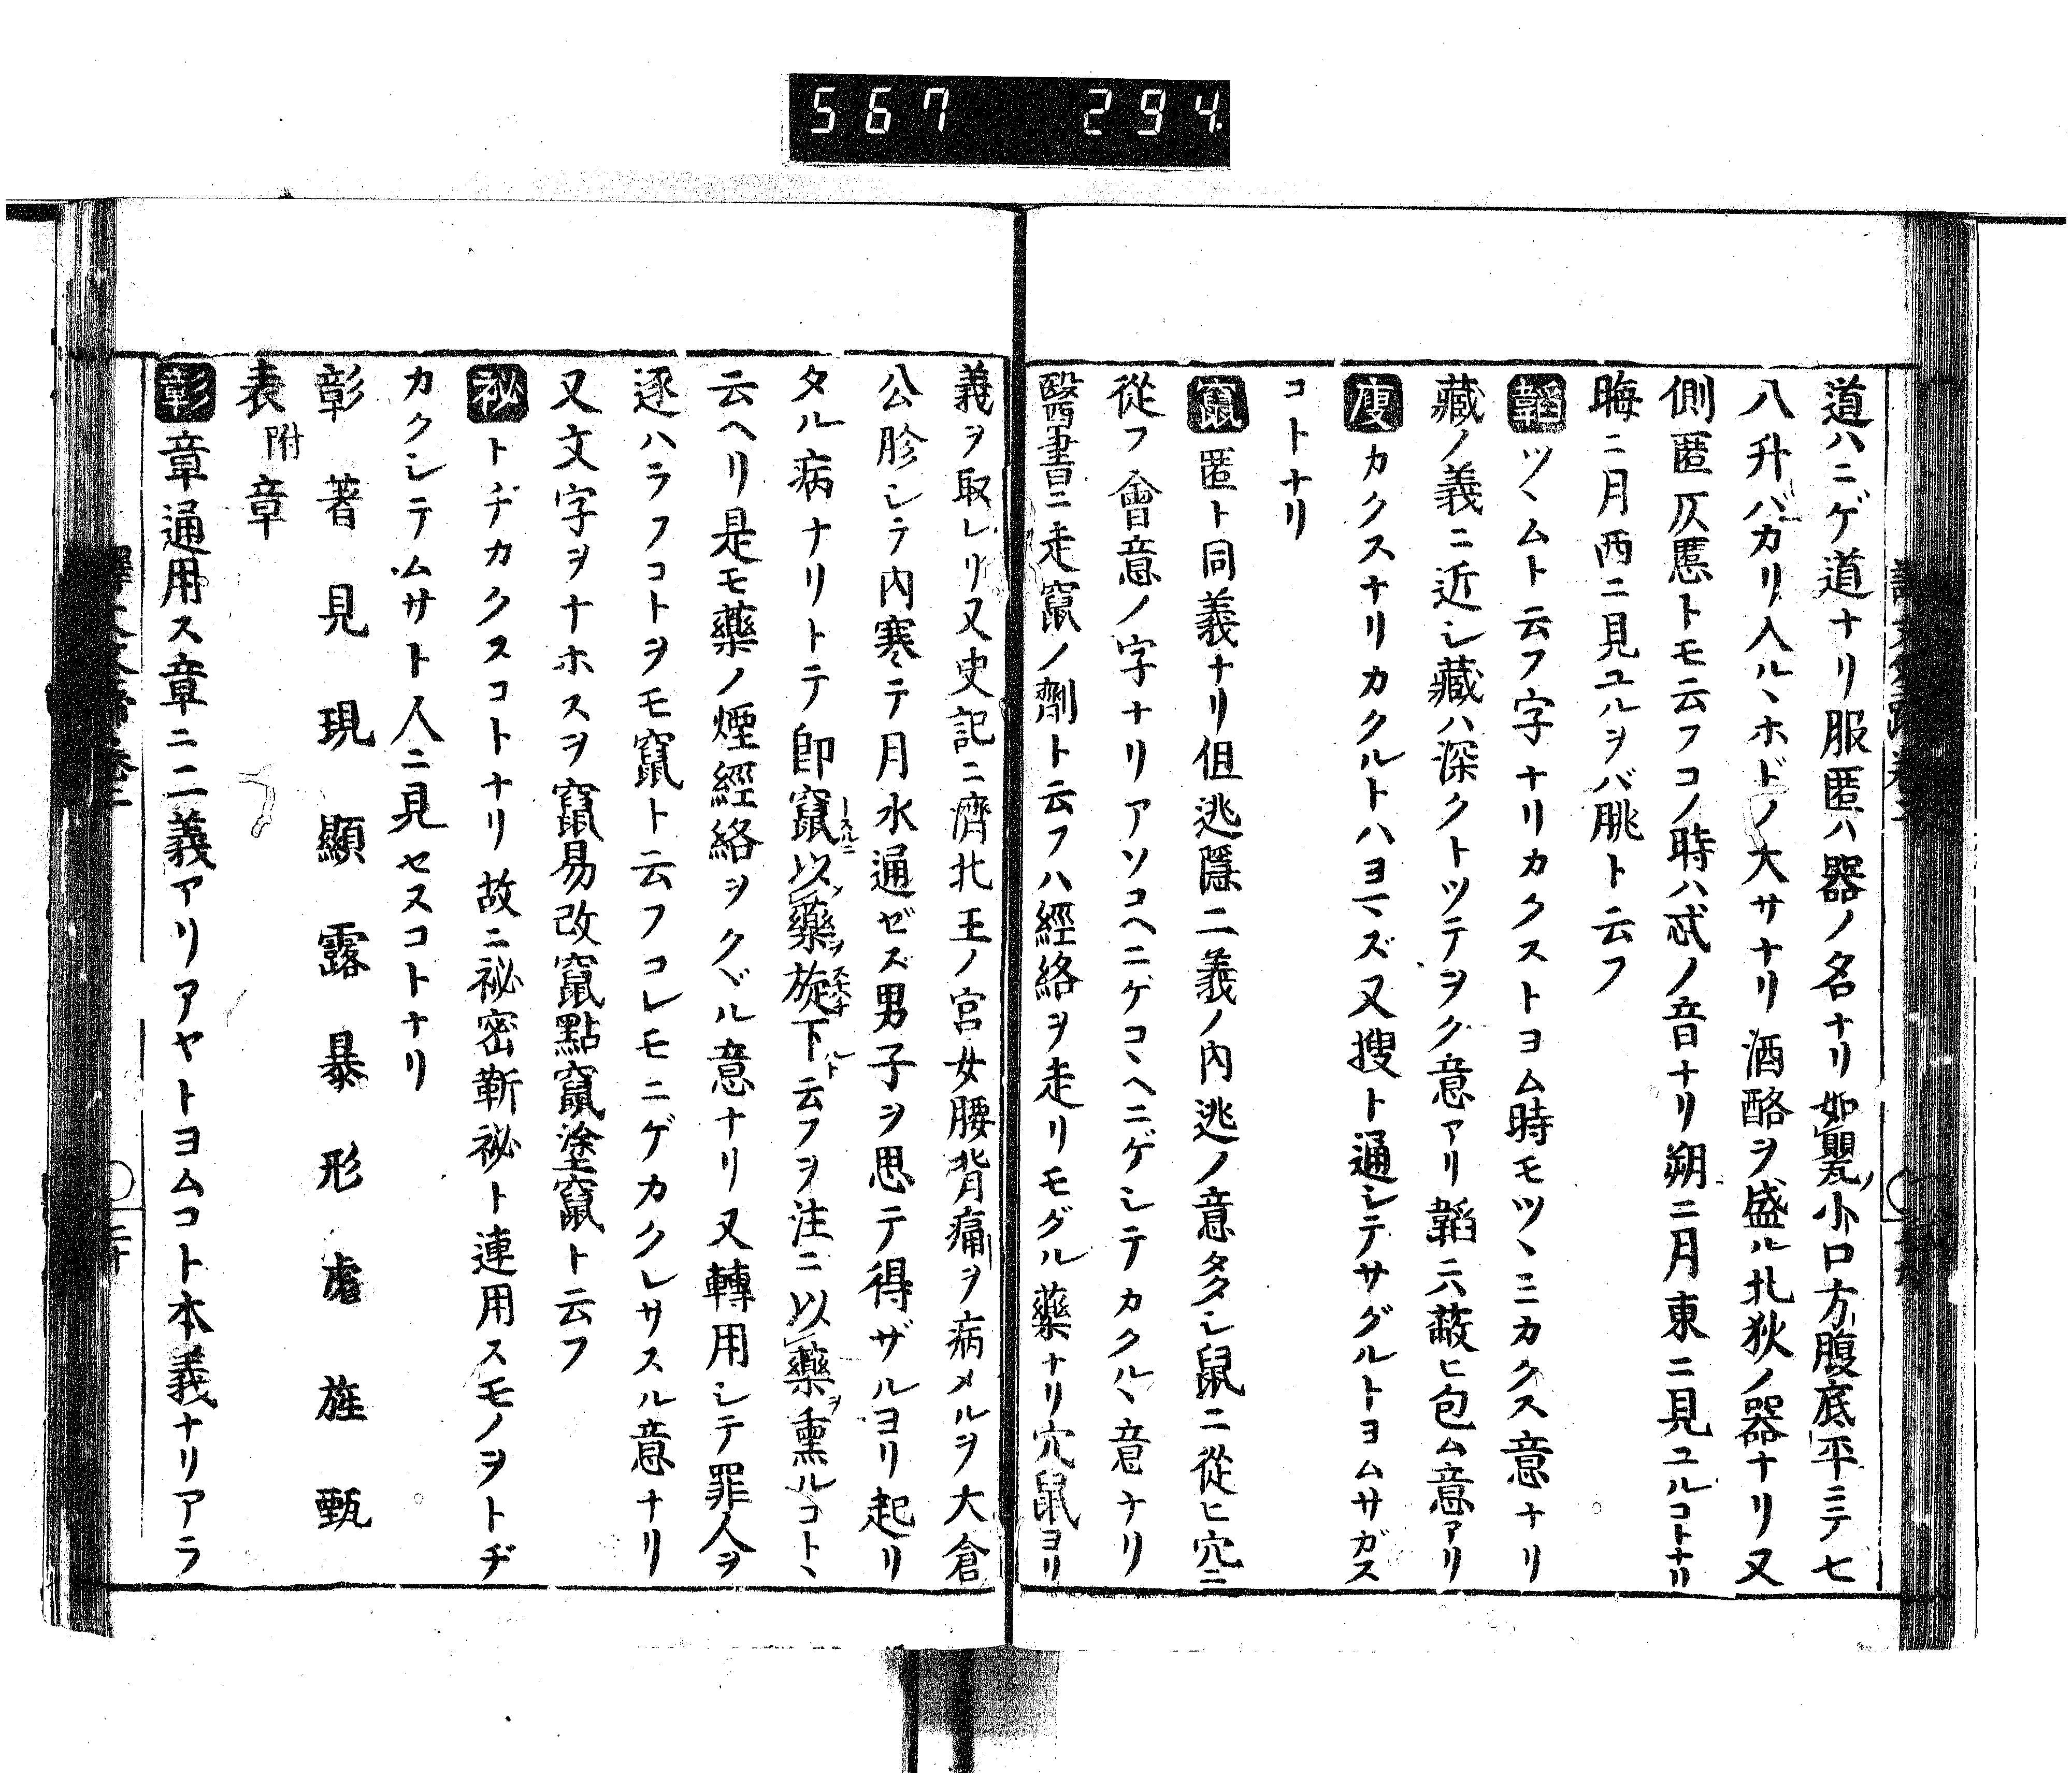 567 294
道ハニゲ道ナリ服匿ハ器ノ名ナリ如甖ノ小口方腹底平ニテ七
八升バカリ入ルヽホドノ大サナリ酒酪ヲ盛ル北狄ノ器ナリ又
側匿仄慝トモ云フコノ時ハ忒ノ音ナリ朔ニ月東ニ見ユルコトナリ
晦ニ月西ニ見ユルヲバ朓ト云フ
韜ツヽムト云フ字ナリカクストヨム時モツヽミカクス意ナリ
藏ノ義ニ近シ藏ハ深クトツテヲク意アリ韜ニハ蔽ヒ包ム意アリ
廋カクスナリカクルトハヨマズ又搜ト通シテサグルトヨムサガス
コトナリ
竄匿ト同義ナリ但逃隱二義ノ内逃ノ意多シ鼠ニ從ヒ穴ニ
從フ會意ノ字ナリアソコヘニゲコヽヘニゲシテカクルヽ意ナリ
醫書ニ走竄ノ劑ト云フハ經絡ヲ走リモグル藥ナリ穴鼠ヨリ
義ヲ取レリ又史記ニ濟北王ノ宮女腰背痛ヲ病メルヲ大倉
公胗シテ内寒テ月水通ゼズ男子ヲ思テ得ザルヨリ起リ
タル病ナリトテ即竄以藥ヲ旋下ルト云フヲ注ニ以藥ヲ熏ルコトヽ
云ヘリ是モ藥ノ煙經絡ヲクヾル意ナリ又轉用シテ罪人ヲ
逐ハラフコトヲモ竄ト云フコレモニゲカクレサスル意ナリ
又文字ヲナホスヲ竄易改竄點竄塗竄ト云フ
祕トヂカクスコトナリ故ニ祕密靳祕ト連用スモノヲトヂ
カクシテムサト人ニ見セヌコトナリ
彰 著 見 現 顯 露 暴 形 旌 甄
表 附 章
彰章通用ス章ニ二義アリアヤトヨムコト本義ナリアラ
二十